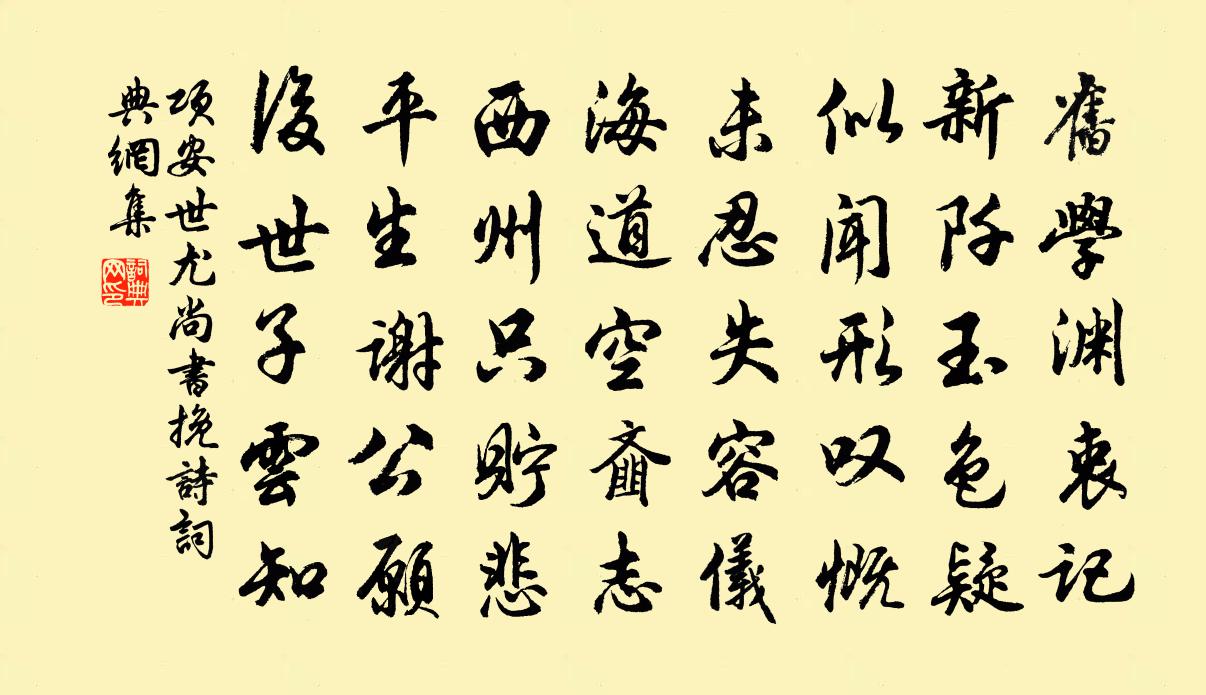 舊學淵衷記
新阡玉色疑
似聞形叹慨
未忍失容儀
海道空齎志
西州只貯悲
平生謝公願
後世子雲知
項安世尤尚書挽詩詞
典網集
詞典
网印